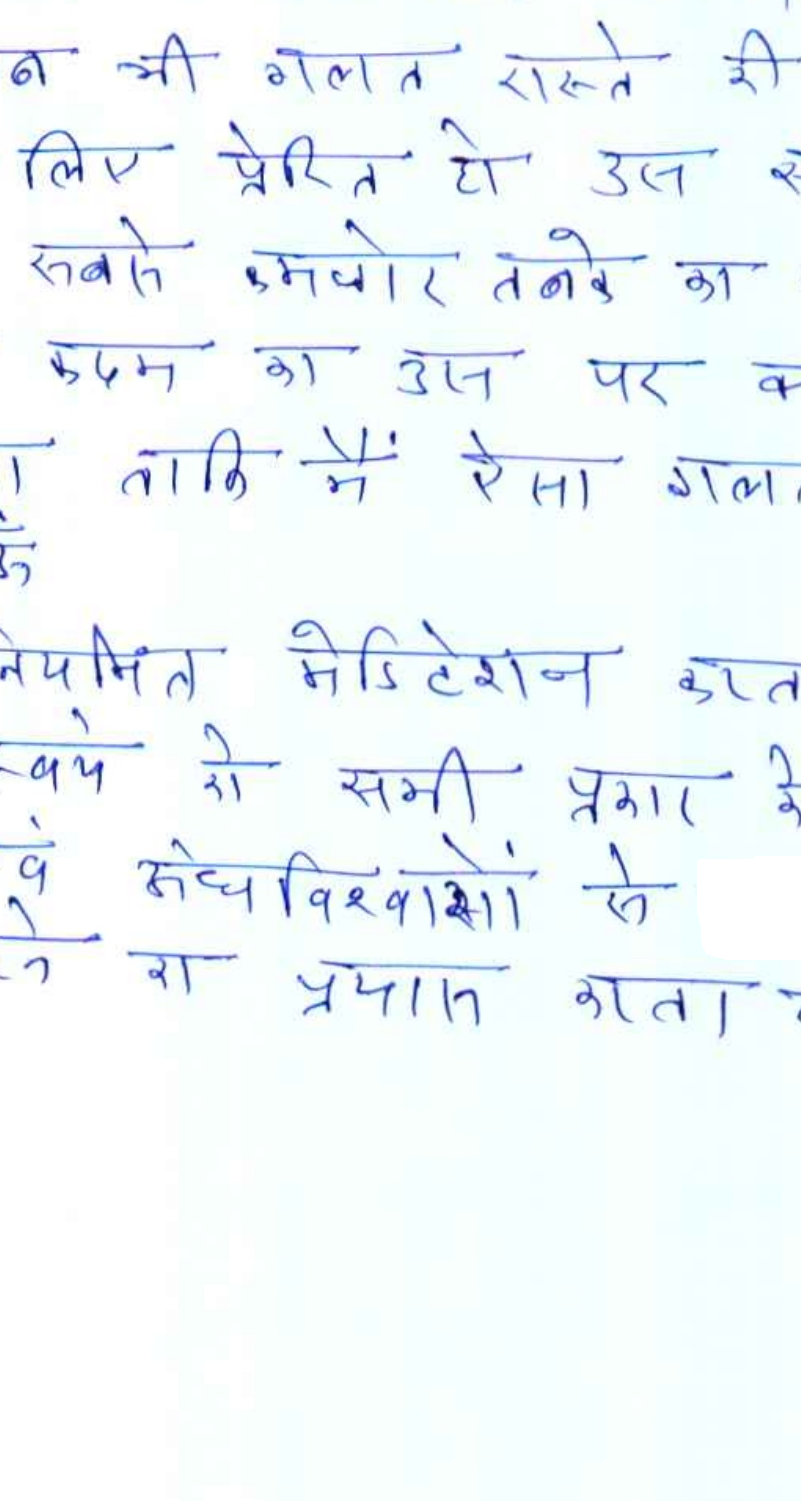 न भी गलत रास्ते की
लिए प्रेरित हो उस स
सबसे कमजोर तबके का
कदम का उस पर क
ा ताकि मैं ऐसा गलत
नियमित मेडिटेशन करत
स्वयं को सभी प्रकार के
वं अंधविश्वासों से
ने का प्रयास करता